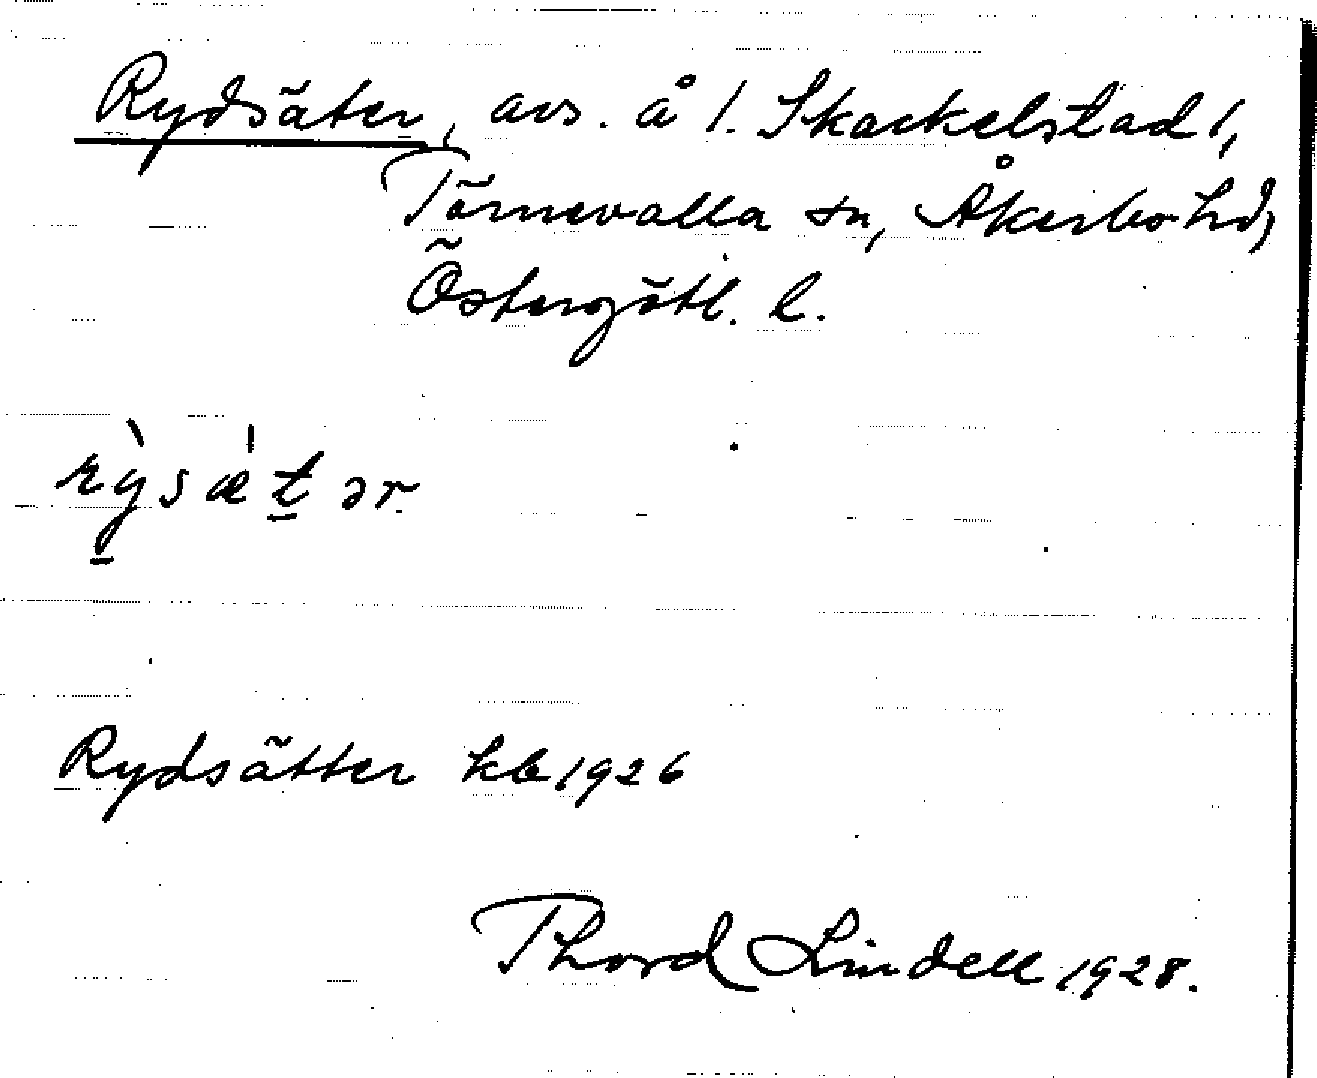 Rydsäter, avs. å 1. Skackelstad 1,
Törnevalla sn, Åkerbo hd,
Östergötl. l.
rỳsæ̍t̠ər.
Rydsätter kb 1926
Thord Lindell 1928.